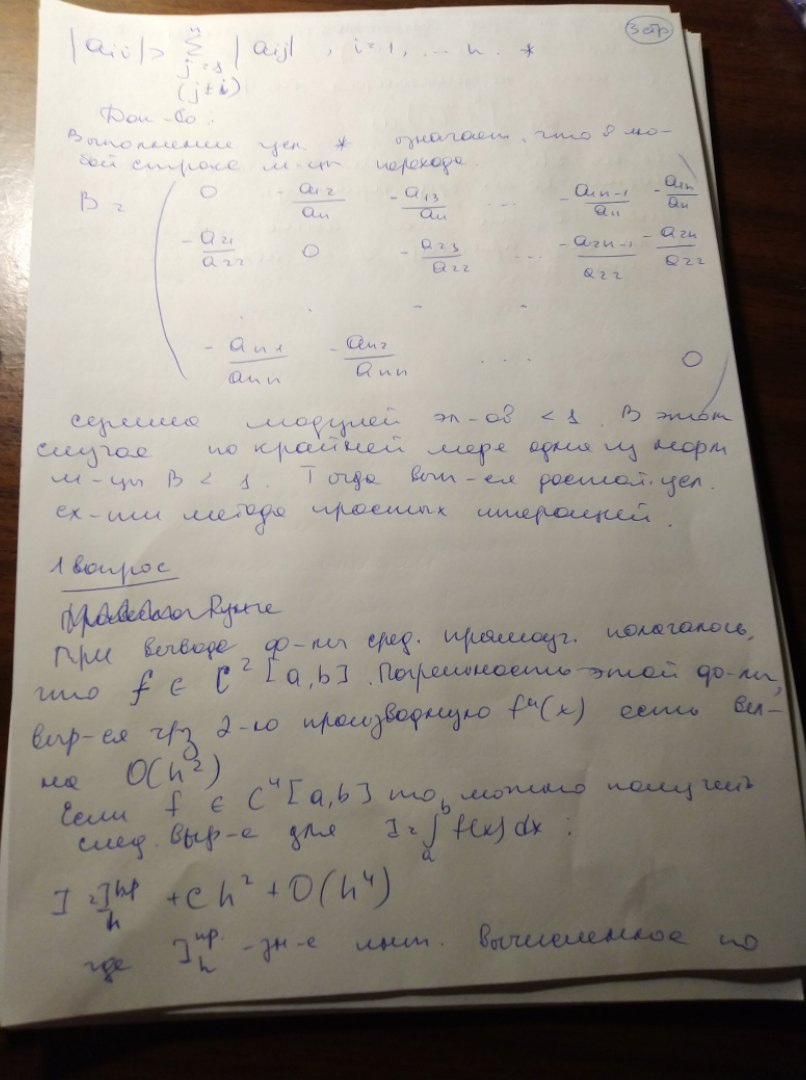 3 стр
|aᵢᵢ| > Σⁿⱼ₌₁ |aᵢⱼ|, i=1, ... n. *
(j≠i)
Док-во:
Выполнение усл. * означает, что в лю-
бой строке м-цы перехода
B = ( 0 -a₁₂/a₁₁ -a₁₃/a₁₁ ... -a₁ₙ₋₁/a₁₁ -a₁ₙ/a₁₁
-a₂₁/a₂₂ 0 -a₂₃/a₂₂ ... -a₂ₙ₋₁/a₂₂ -a₂ₙ/a₂₂
. . - -
-aₙ₁/aₙₙ -aₙ₂/aₙₙ ... 0 )
сумма модулей эл-ов < 1. В этом
случае по крайней мере одна из норм
м-цы B < 1. Тогда вып-ся достат. усл.
сх-ти метода простых итераций.
1 вопрос
При выводе ф-лы сред. прямоуг. полагалось,
что f ∈ C²[a,b]. Погрешность этой ф-лы,
выр-ся чрз 2-ю производную f"(x) есть вел-
на O(h²)
Если f ∈ C⁴[a,b] то, можно получить
след. выр-е для I = ∫ₐᵇ f(x)dx :
I = Iₕᵖᵖ + ch² + O(h⁴)
где Iₕᵖᵖ· -зн-е инт. вычисленное по